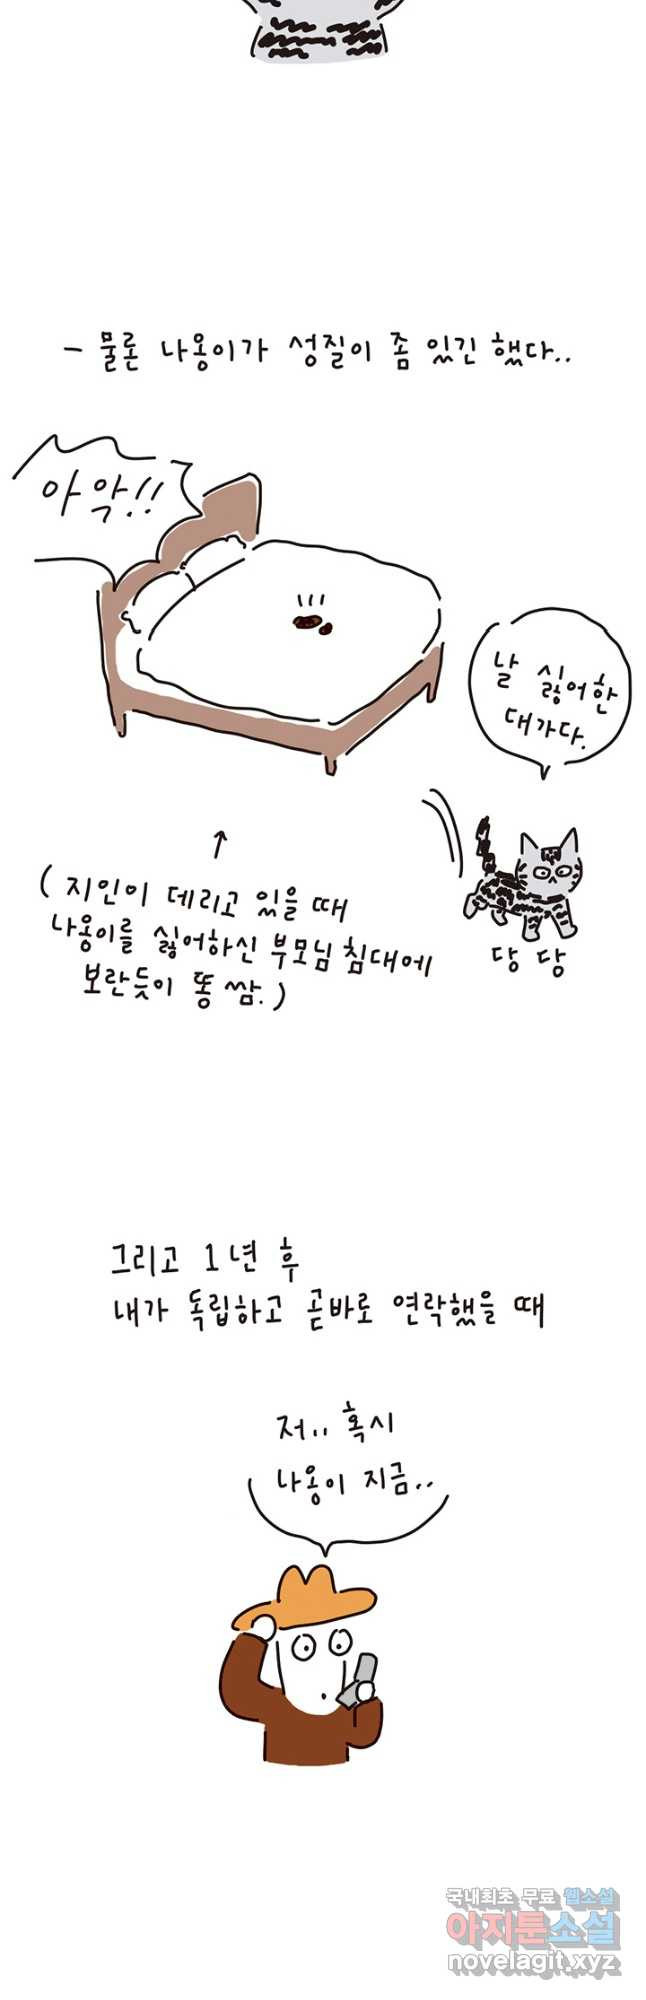 - 물론 나옹이가 성질이 좀 있긴 했다..
아악!!
날 싫어한
대가다.
(지인이 데리고 있을 때
나옹이를 싫어하신 부모님 침대에
보란듯이 똥 쌈.)
당 당
그리고 1년 후
내가 독립하고 곧바로 연락했을 때
저.. 혹시
나옹이 지금..
국내최초 무료 웹소설
아지툰소설
novelagit.xyz